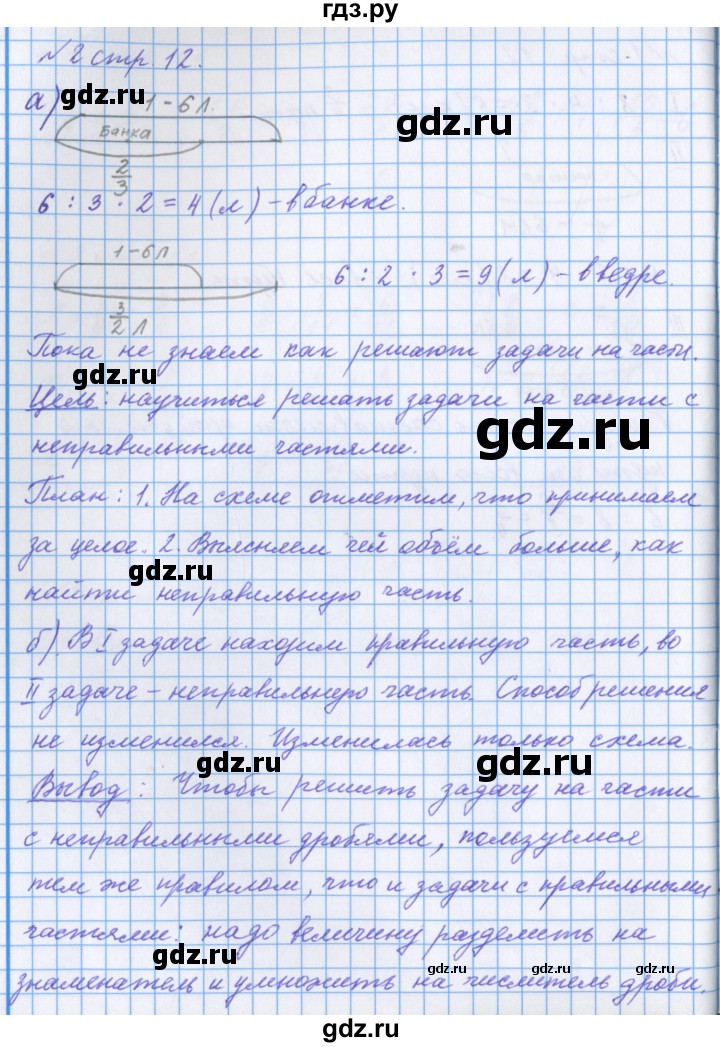 гдз.ру
№ 2 стр 12.
а)
gdz.ru
1 - 6 л.
Банка
gdz.ru
2/3
6 : 3 · 2 = 4 (л) - в банке.
1 - 6 л
6 : 2 · 3 = 9 (л) - в ведре.
3/2 л
Пока не знаем как решают задачи на части.
gdz.ru
Цель: научиться решать задачи на части с
gdz.ru
неправильными частями.
План: 1. На схеме отметим, что принимаем
за целое. 2. Выясняем чей объём больше, как
gdz.ru
найти неправильную часть.
б) В I задаче находим правильную часть, во
II задаче - неправильную часть. Способ решения
не изменился. Изменилась только схема.
gdz.ru
gdz.ru
Вывод: Чтобы решить задачу на части
с неправильными дробями, пользуемся
тем же правилом, что и задачи с правильными
частями: надо величину разделить на
gdz.ru
gdz.ru
gdz.ru
знаменатель и умножить на числитель дроби.
gdz.ru